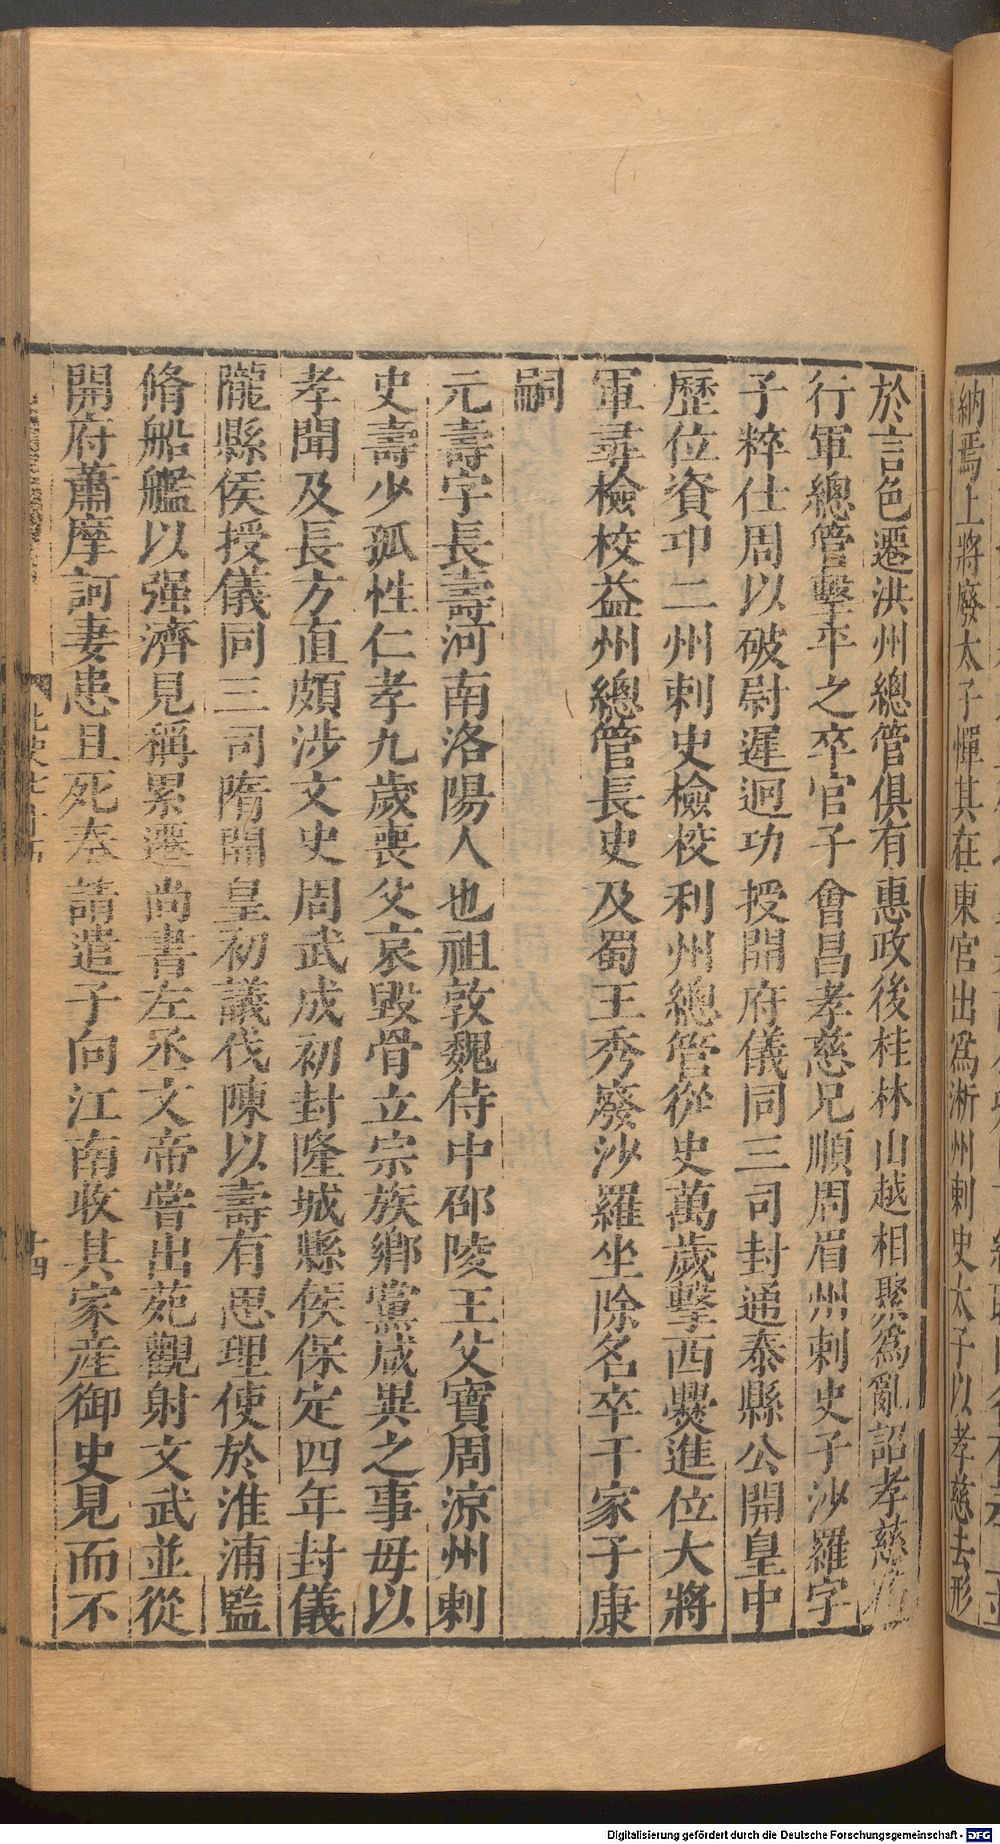 納焉上將廢太子憚其在東宮出爲淅州刺史太子以孝慈去形
於言色遷洪州總管俱有惠政後桂林山越相聚爲亂詔孝慈爲
行軍總管擊平之卒官子會昌孝慈兄順周眉州刺史子沙羅字
子粹仕周以破尉遲迥功授開府儀同三司封通泰縣公開皇中
歷位資卭二州刺史檢校利州總管從史萬歲擊西爨進位大將
軍尋檢校益州總管長史及蜀王秀廢沙羅坐除名卒于家子康
嗣
元壽字長壽河南洛陽人也祖敦魏侍中邵陵王父寶周涼州刺
史壽少孤性仁孝九歲喪父哀毀骨立宗族鄉黨咸異之事母以
孝聞及長方直頗涉文史周武成初封隆城縣侯保定四年封儀
隴縣侯授儀同三司隋開皇初議伐陳以壽有思理使於淮浦監
脩船艦以强濟見稱累遷尚書左丞文帝嘗出苑觀射文武並從
開府蕭摩訶妻患且死奏請遣子向江南收其家産御史見而不
十四
Digitalisierung gefördert durch die Deutsche Forschungsgemeinschaft - DFG